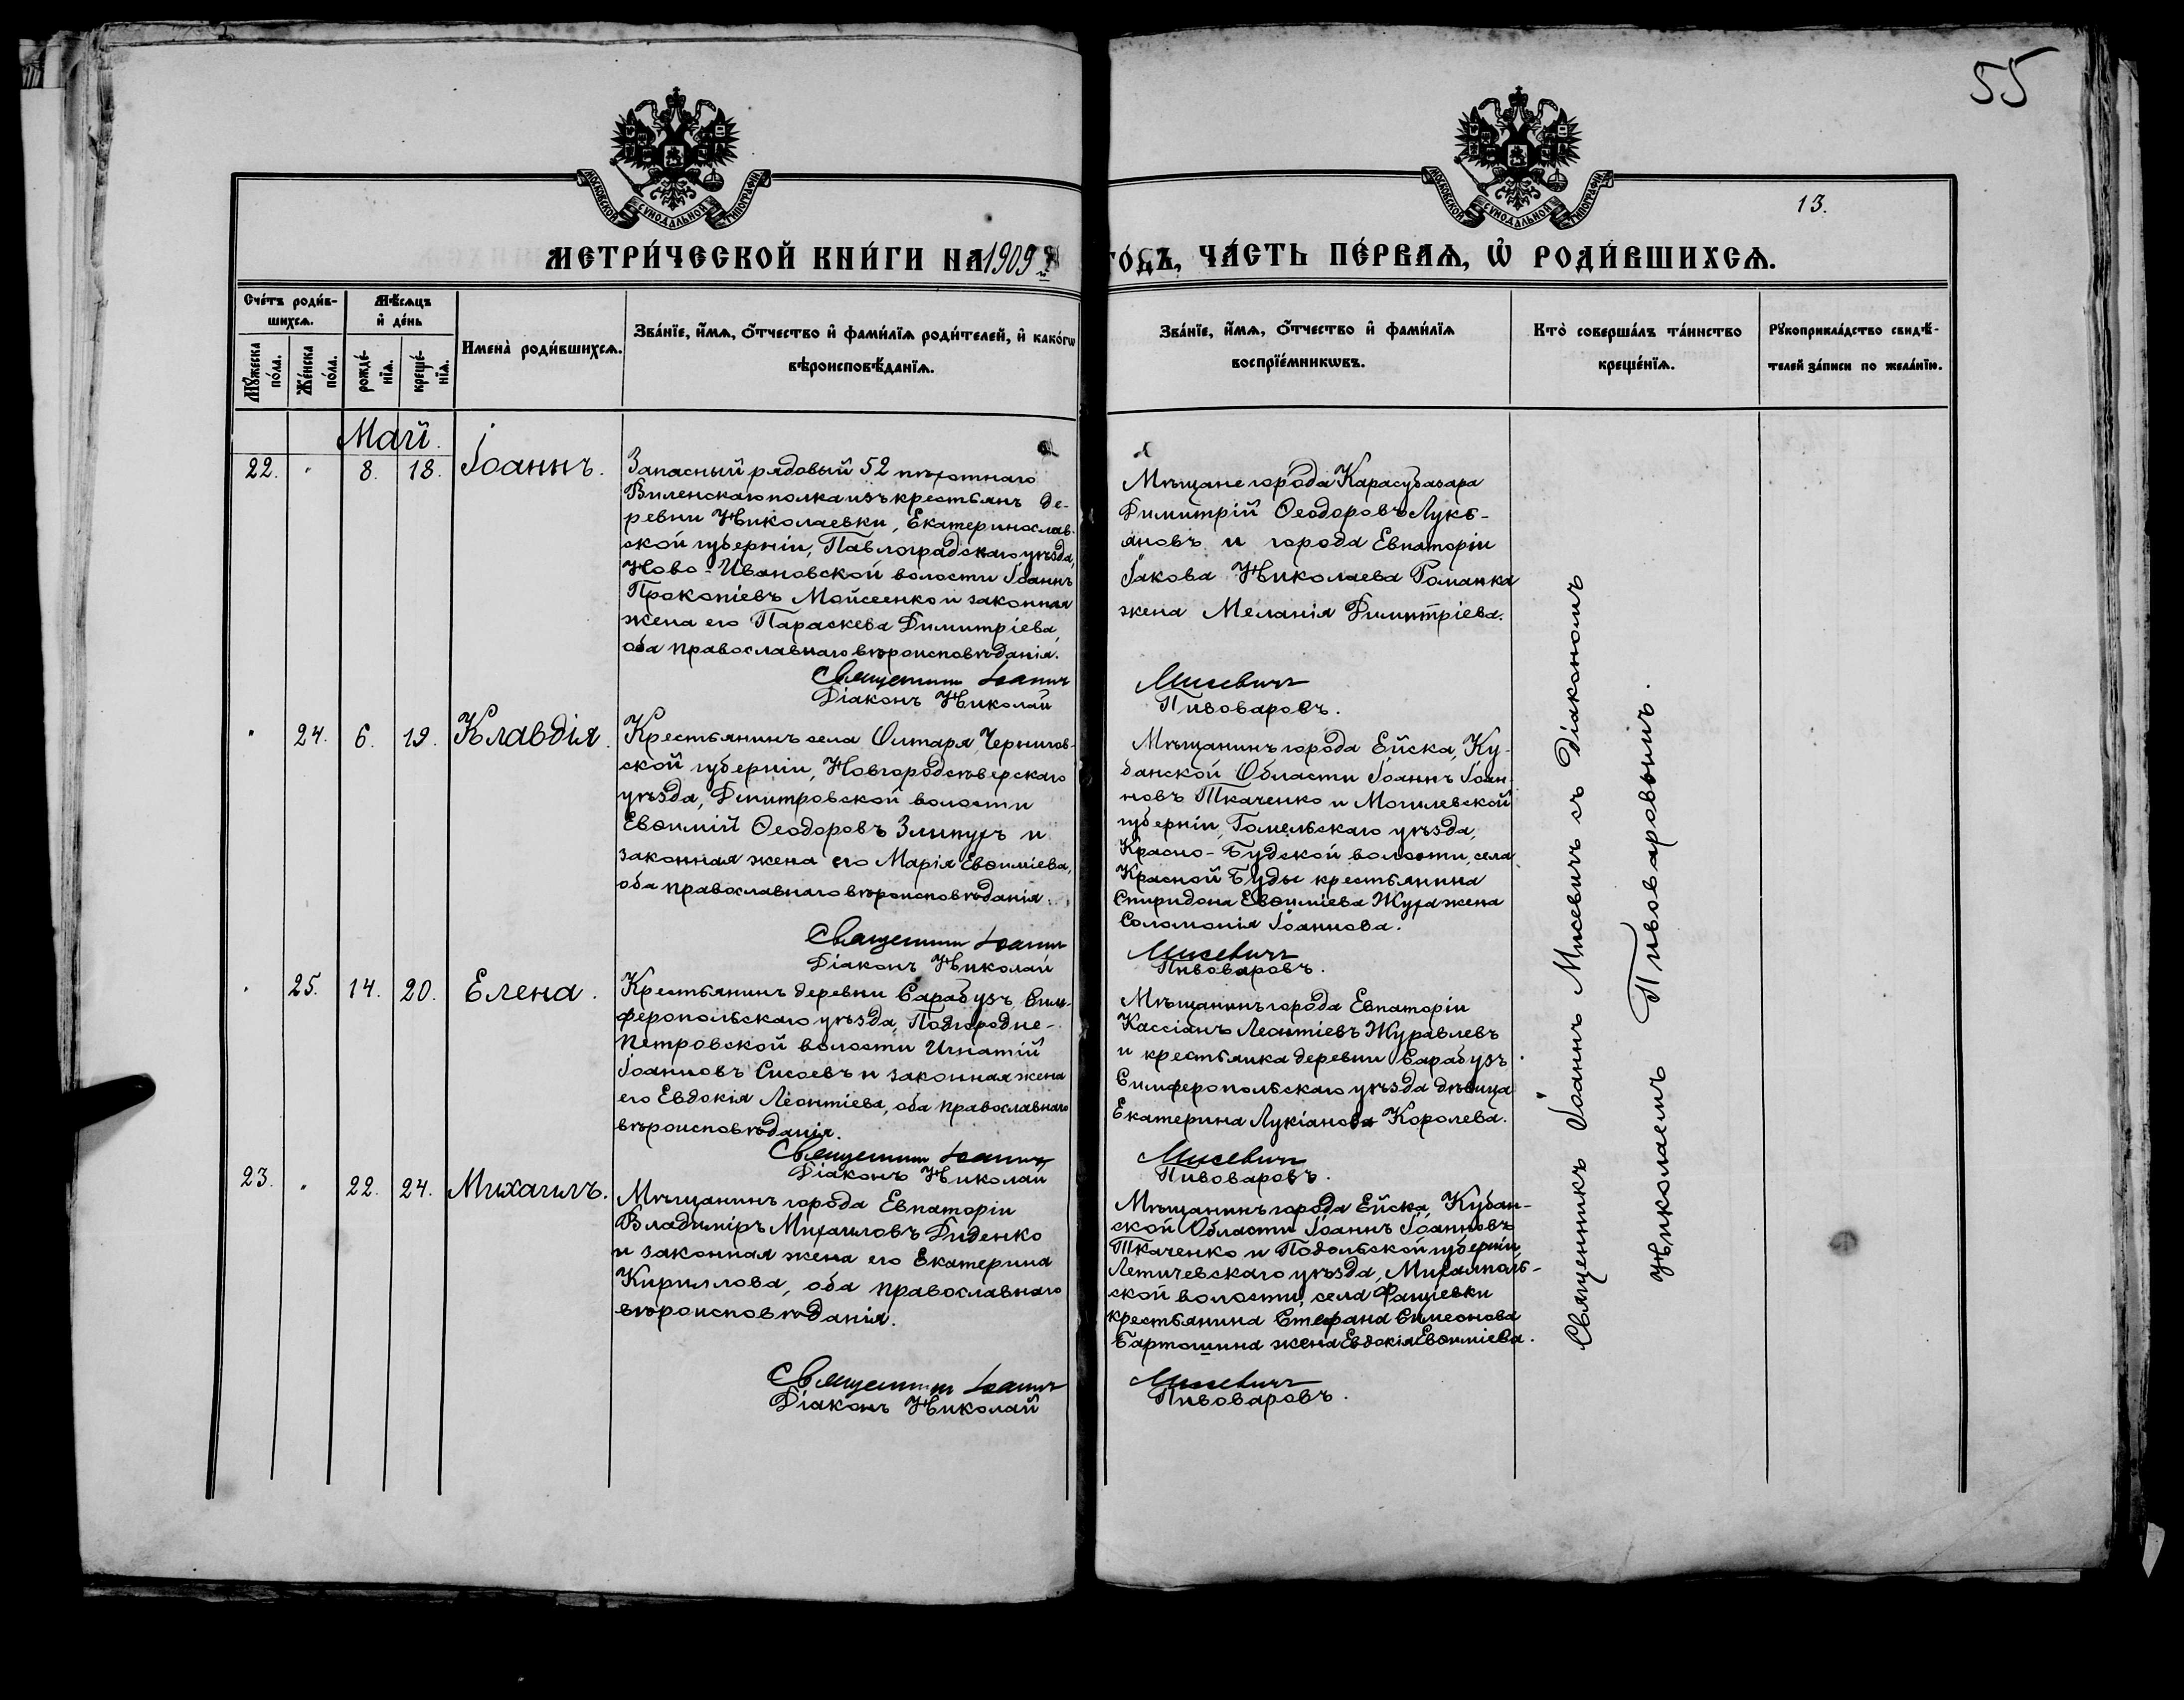 55
МОСКОВСКОЙ СУНОДАЛЬНОЙ ТИПОГРАФІИ
МОСКОВСКОЙ СУНОДАЛЬНОЙ ТИПОГРАФІИ
13.
МЕТРИ́ЧЕСКОЙ КНИ́ГИ НА 1909 й
ГО́ДЪ, ЧА́СТЬ ПЕ́РВАѦ, Ѡ҆ РОДИ́ВШИХСѦ.
Сче́тъ роди́в-
шихсѧ.
Мѣ́сѧцъ
и҆ де́нь
Мꙋ́жеска
по́ла.
Же́нска
по́ла.
рожде́-
нїѧ.
креще́-
нїѧ.
Имена̀ роди́вшихсѧ.
Зва́нїе, и҆́мѧ, ѻ҆́тчество и҆ фами́лїѧ роди́телей, и҆ како́гѡ
вѣроисповѣ́данїѧ.
Зва́нїе, и҆́мѧ, ѻ҆́тчество и҆ фами́лїѧ
воспрїе́мникѡвъ.
Кто̀ соверша́лъ та́инство
креще́нїѧ.
Рꙋкоприкла́дство свидѣ́-
телей за́писи по жела́нїю.
Май.
22. " 8. 18. Іоаннъ.
Запасный рядовый 52 пѣхотнаго
Виленскаго полка изъ крестьянъ де-
ревни Николаевки, Екатеринослав-
ской губерніи, Павлоградскаго уѣзда,
Ново-Ивановской волости Іоаннъ
Прокопіевъ Мойсеенко и законная
жена его Параскева Димитріева,
оба православнаго вѣроисповѣданія.
Священникъ Іоаннъ
Діаконъ Николай
Мѣщане города Карасубазара
Димитрій Ѳеодоровъ Лукь-
ановъ и города Евпаторіи
Іакова Николаева Романка
жена Меланія Димитріева.
Мисевичъ
Пивоваровъ.
" 24. 6. 19. Клавдія.
Крестьянинъ села Олтаря, Чернигов-
ской губерніи, Новгородсѣверскаго
уѣзда, Дмитровской волости
Евѳимій Ѳеодоровъ Злипухъ и
законная жена его Марія Евѳиміева,
оба православнаго вѣроисповѣданія.
Священникъ Іоаннъ
Діаконъ Николай
Мѣщанинъ города Ейска, Ку-
банской Области Іоаннъ Іоан-
новъ Ткаченко и Могилевской
губерніи, Гомельскаго уѣзда,
Красно-Будской волости, села
Красной Буды крестьянина
Спиридона Евѳиміева Жура жена
Соломонія Іоаннова.
Мисевичъ
Пивоваровъ.
" 25. 14. 20. Елена.
Крестьянинъ деревни Сарабузъ, Сим-
феропольскаго уѣзда, Подгородне-
Петровской волости Игнатій
Іоанновъ Сысоевъ и законная жена
его Евдокія Леонтіева, оба православнаго
вѣроисповѣданія.
Священникъ Іоаннъ
Діаконъ Николай
Мѣщанинъ города Евпаторіи
Кассіанъ Леонтіевъ Журавлевъ
и крестьянка деревни Сарабузъ
Симферопольскаго уѣзда дѣвица
Екатерина Лукіанова Королева.
Мисевичъ
Пивоваровъ.
23. " 22. 24. Михаилъ.
Мѣщанинъ города Евпаторіи
Владиміръ Михаиловъ Диденко
и законная жена его Екатерина
Кириллова, оба православнаго
вѣроисповѣданія.
Священникъ Іоаннъ
Діаконъ Николай
Мѣщанинъ города Ейска, Кубан-
ской Области Іоаннъ Іоанновъ
Ткаченко и Подольской губерніи
Летичевскаго уѣзда, Михалполь-
ской волости, села Фащіевки
крестьянина Стефана Симеонова
Бартошина жена Евдокія Евѳиміева.
Мисевичъ
Пивоваровъ.
Священникъ Іоаннъ Мисевичъ съ Діакономъ
Николаемъ Пивоваровымъ.